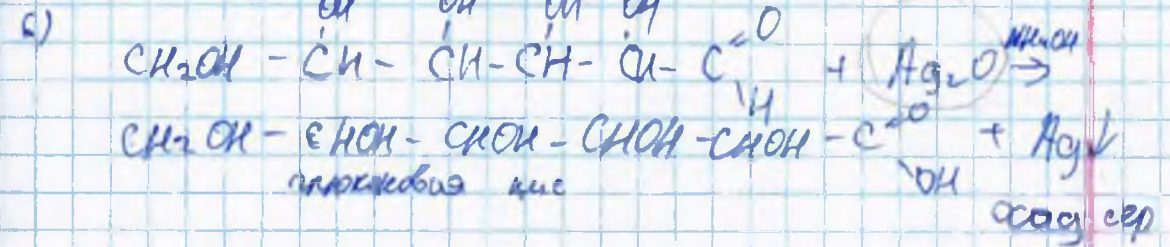 с)
OH OH OH OH
CH₂OH - CH - CH - CH - CH - C =O \H + Ag₂O NH₄OH →
CH₂OH - CHOH - CHOH - CHOH - CHOH - C =O \OH + Ag↓
глюконовая кис
осад сер